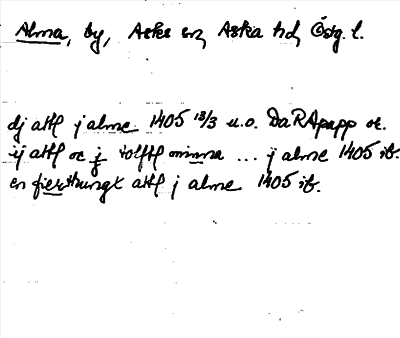 Alma, by, Aska sn, Aska hd, Östg. l.
dj attl j alme 1405 13/3 u.o. DaRApapp or.
ij attl oc j tolftl minna ... ij alme 1405 ib.
en fierthungx attl j alme 1405 ib.